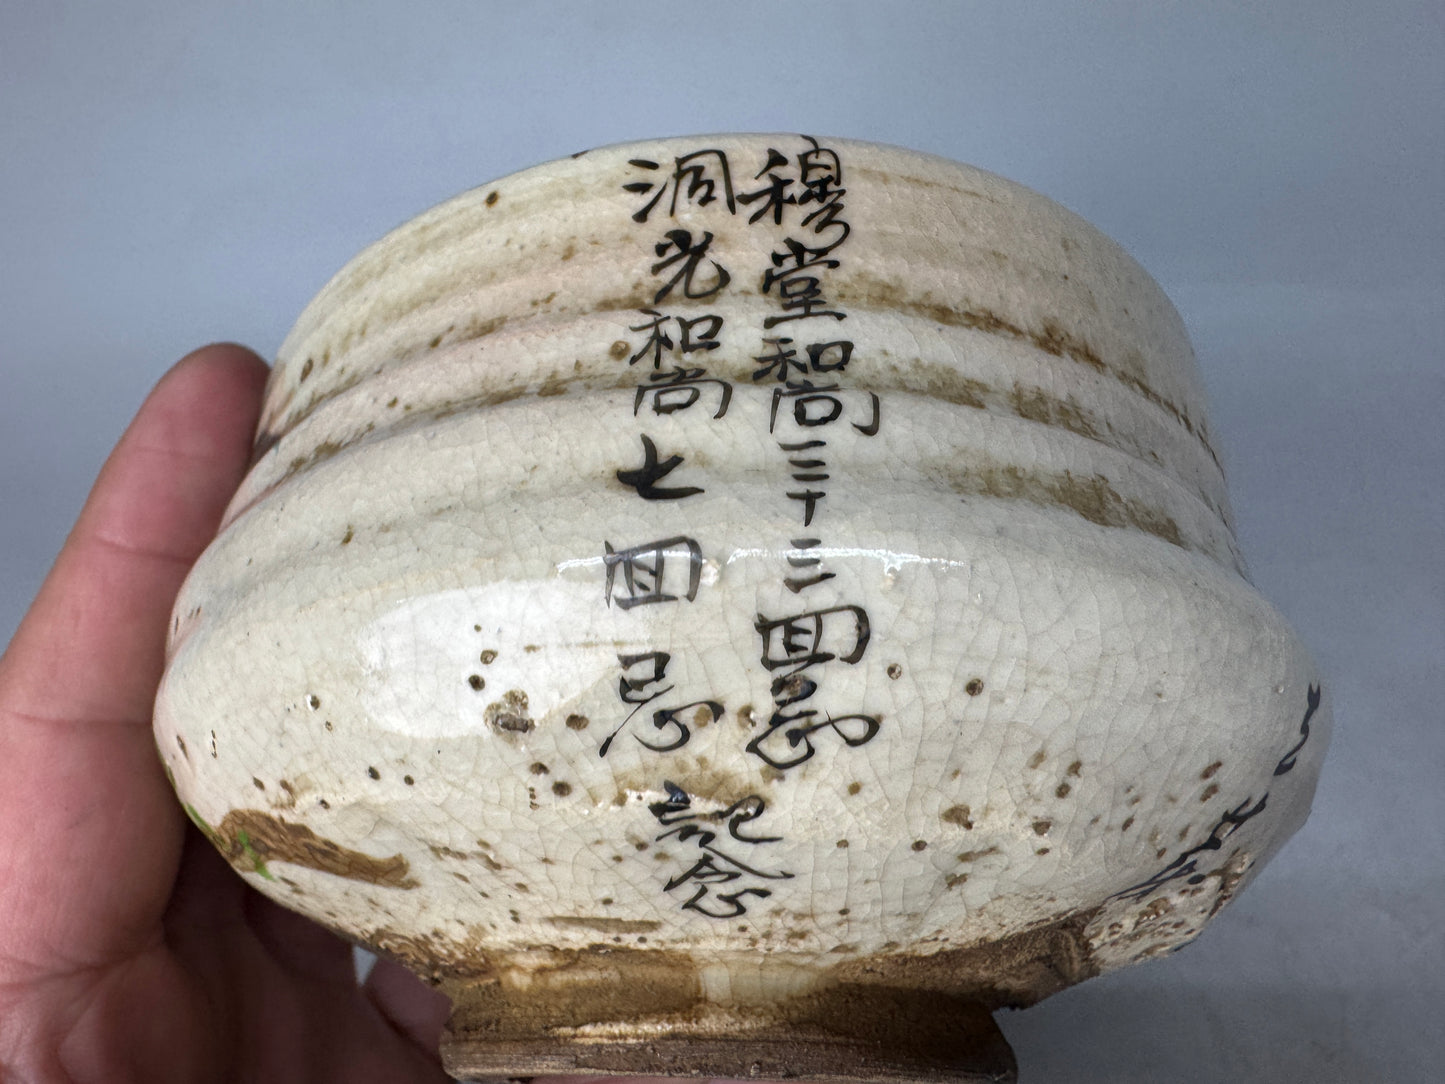 穆堂和尚三十三囬忌
洞光和尚七囬忌
記念